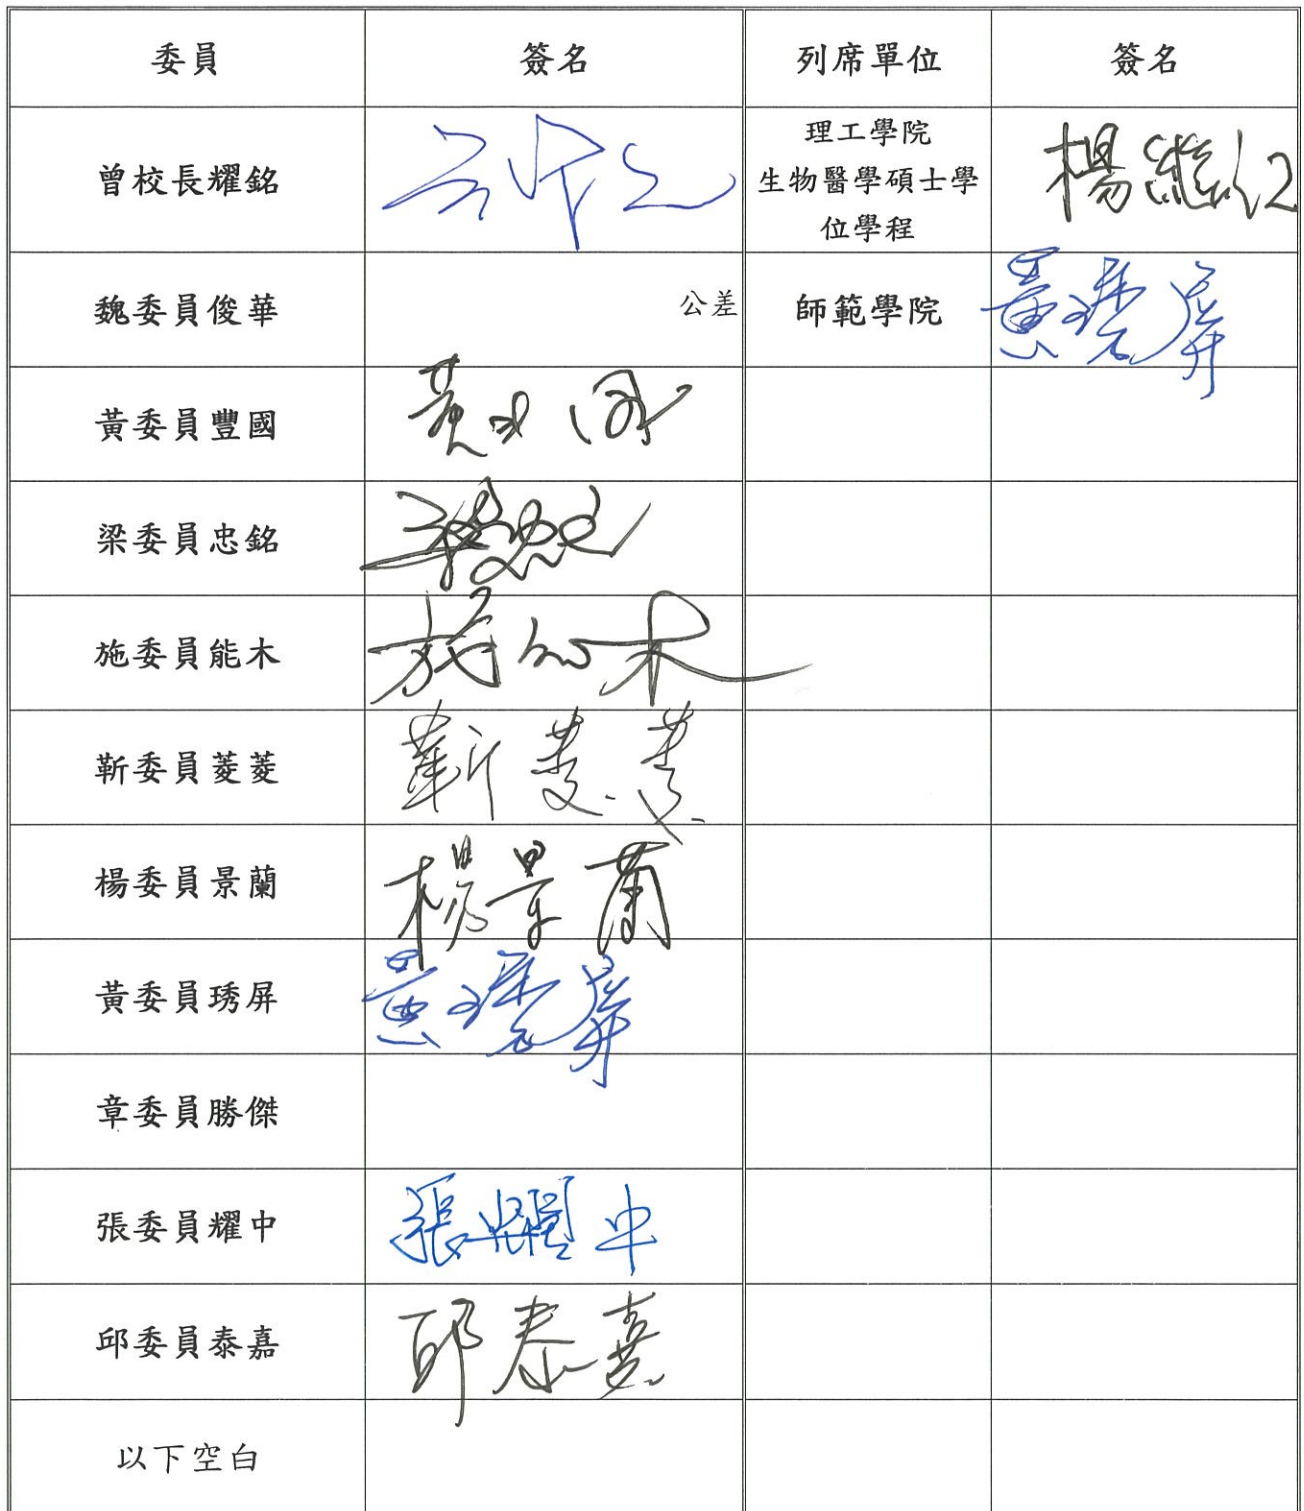 委員 簽名 列席單位 簽名
曾校長耀銘
理工學院
生物醫學碩士學
位學程
楊繼江
魏委員俊華 公差 師範學院 黃琇屏
黃委員豐國
梁委員忠銘
施委員能木 施能木
靳委員菱菱 靳菱菱
楊委員景蘭 楊景蘭
黃委員琇屏 黃琇屏
章委員勝傑
張委員耀中 張耀中
邱委員泰嘉 邱泰嘉
以下空白